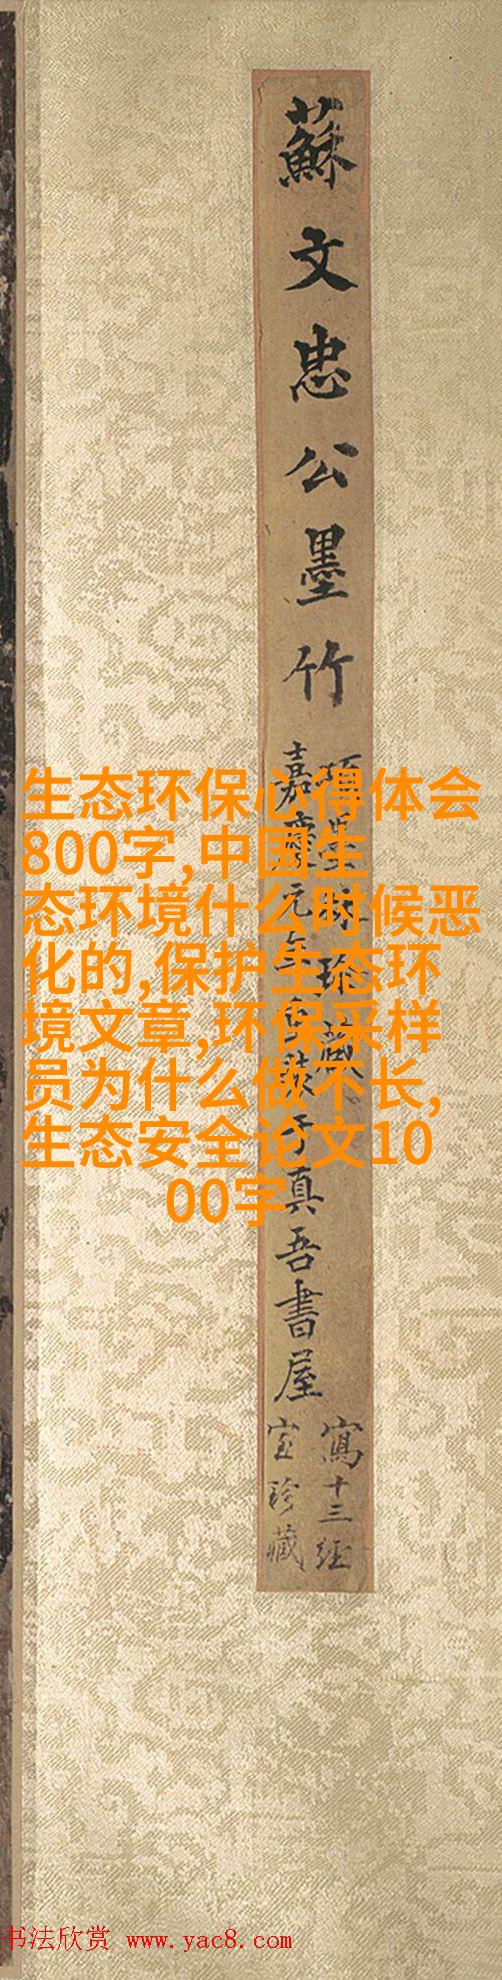 蘇文忠公墨竹
嘉慶元年重裝于真吾書屋
寫十三經
室珍藏
生态环保心得体会
800字,中国生
态环境什么时候恶
化的,保护生态环
境文章,环保采样
员为什么做不长,
生态安全论文10
00字
书法欣赏 www.yac8.com